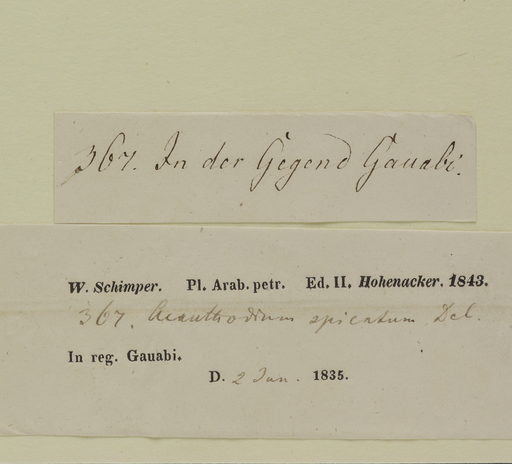 367. In der Gegend Gauabi.
W. Schimper. Pl. Arab. petr. Ed. II. Hohenacker. 1843.
367. Acanthodium spicatum Del.
In reg. Gauabi.
D. 2 Jan. 1835.